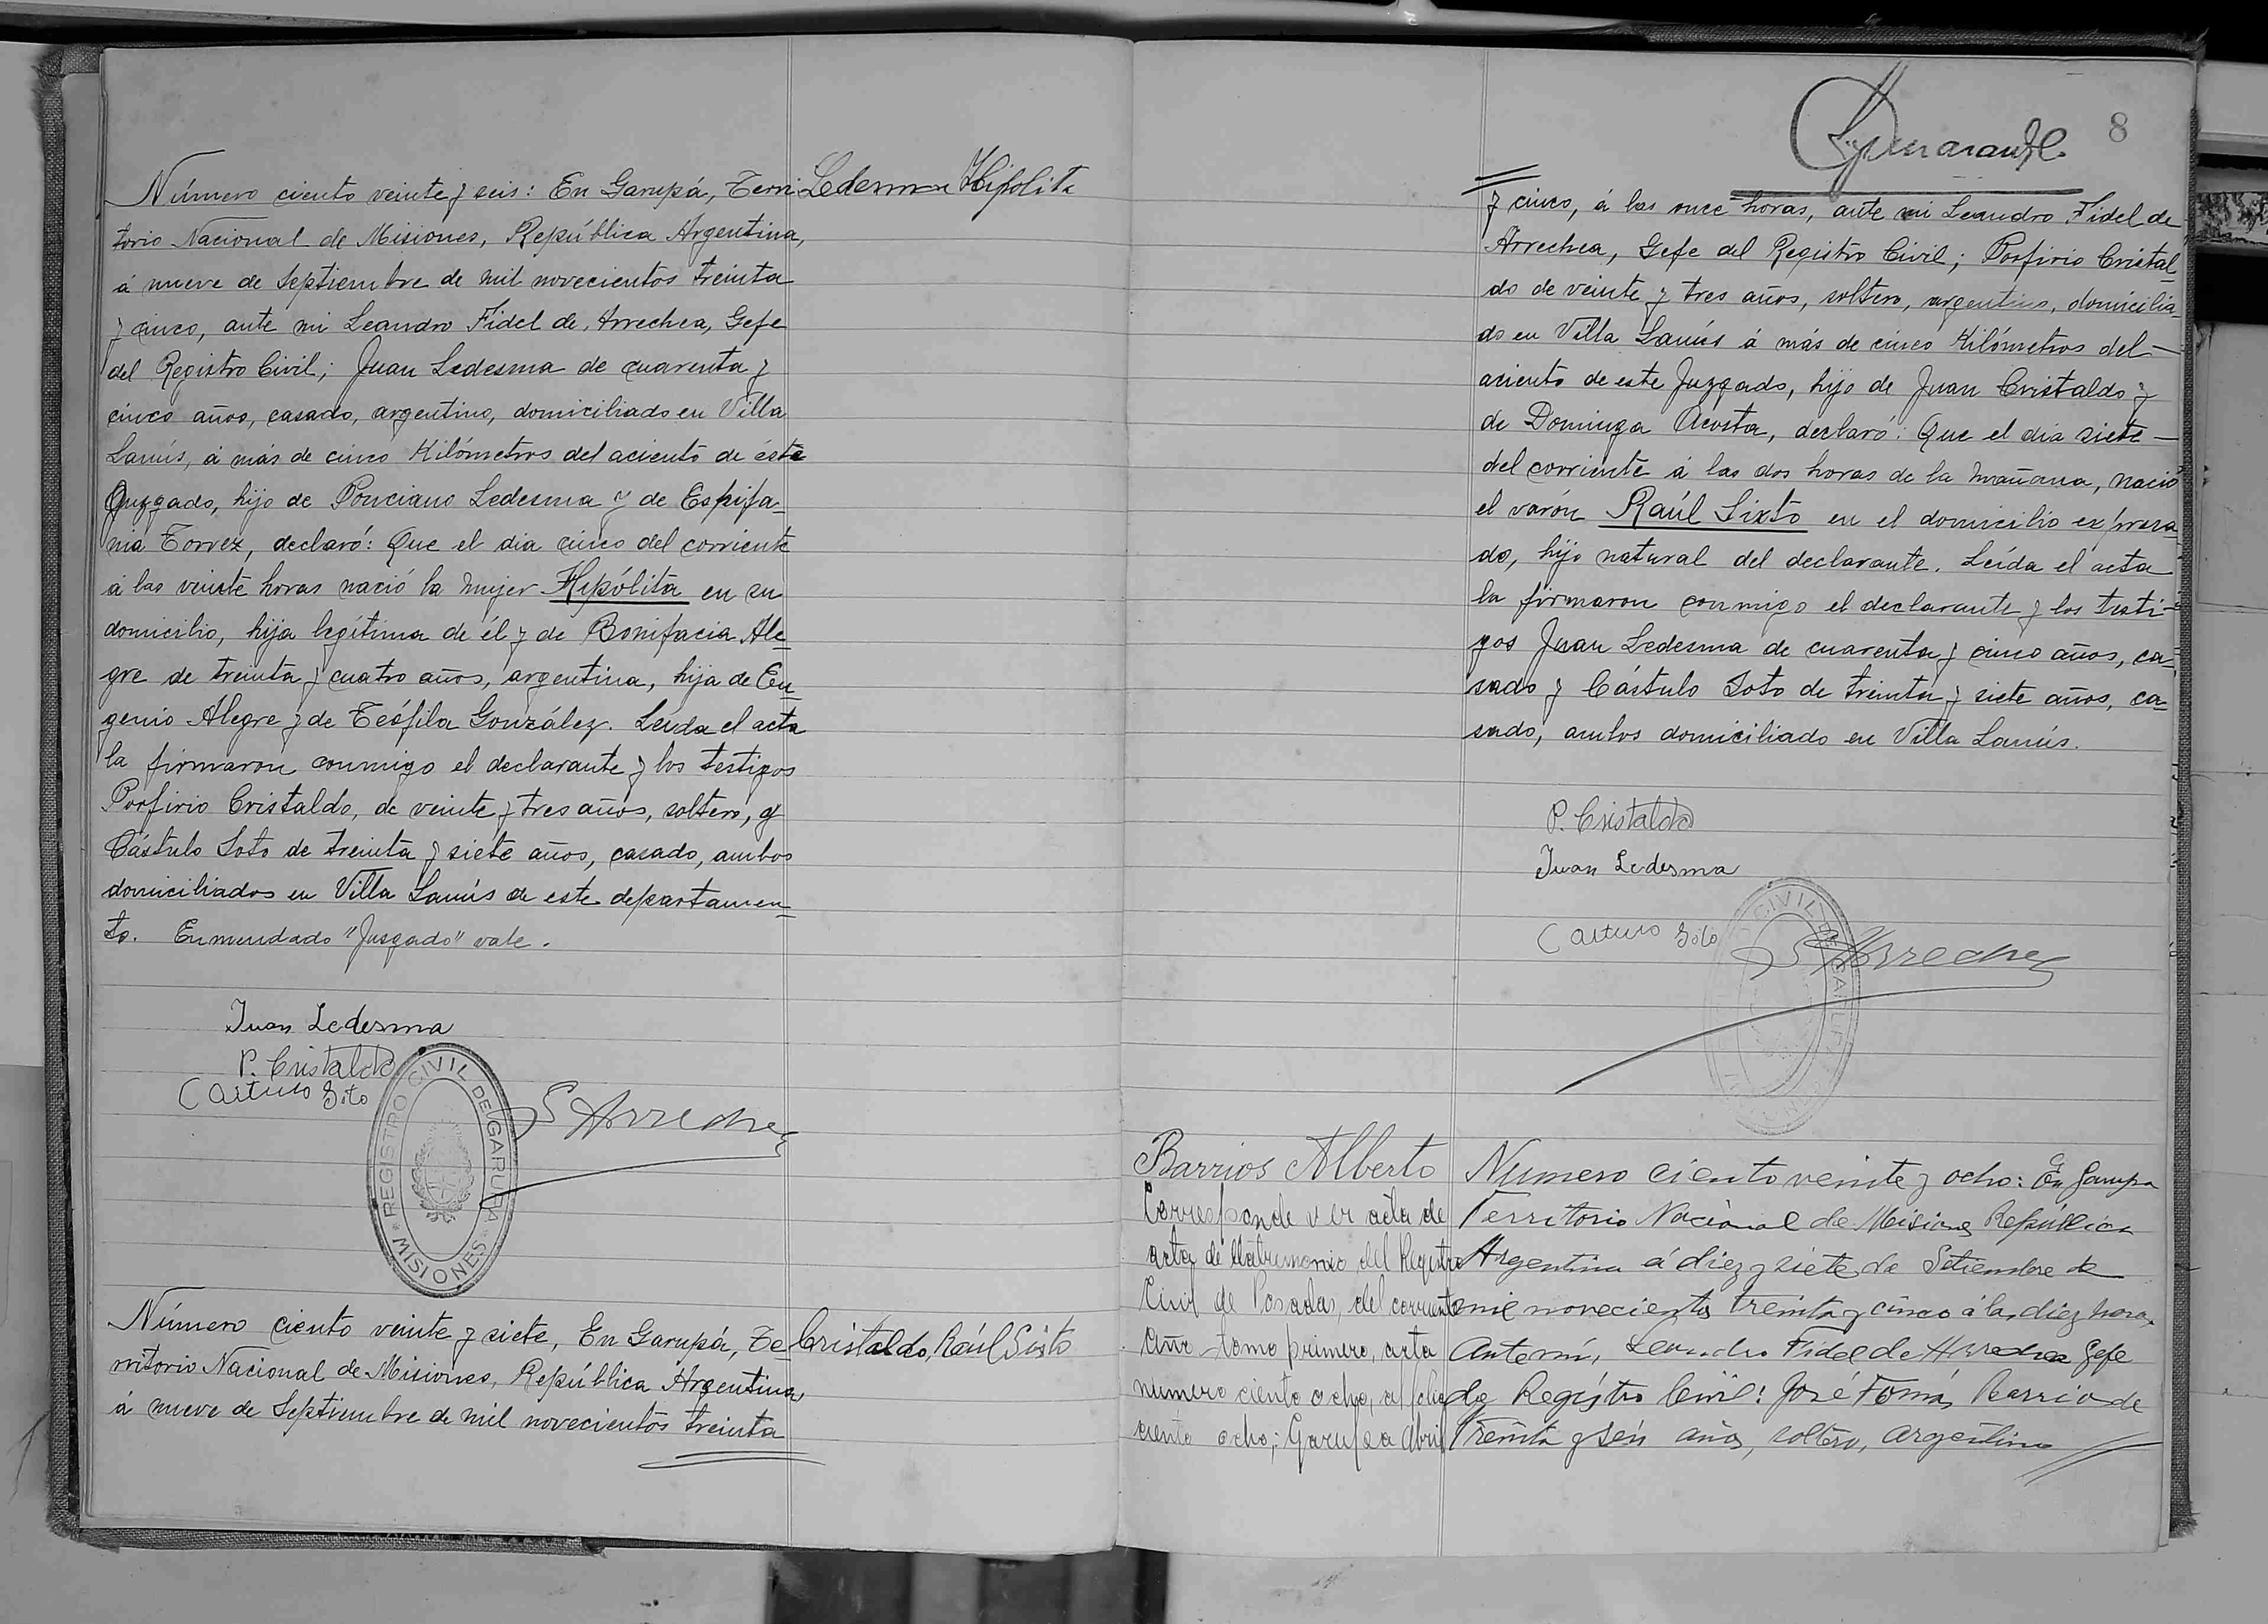 Número ciento veinte y seis: En Garupá, Terri
Ledesma Hipolita
torio Nacional de Misiones, República Argentina,
á nueve de Septiembre de mil novecientos treinta
y cinco, ante mi Leandro Fidel de Arrechea, Gefe
del Registro Civil; Juan Ledesma de cuarenta y
cinco años, casado, argentino, domiciliado en Villa
Lanús, á más de cinco Kilómetros del aciento de éste
Juzgado, hijo de Ponciano Ledesma y de Espifa-
nia Torrez, declaró: Que el dia cinco del corriente
á las veinte horas nació la mujer Hipólita en su
domicilio, hija legítima de él y de Bonifacia Ale-
gre de treinta y cuatro años, argentina, hija de Eu-
genio Alegre y de Teófila González. Leída el acta
la firmaron conmigo el declarante y los testigos
Porfirio Cristaldo, de veinte y tres años, soltero, y
Cástulo Soto de treinta y siete años, casado, ambos
domiciliados en Villa Lanús de este departamen-
to. Enmendado "Juzgado" vale.
Juan Ledesma
P. Cristaldo
Castulo Soto
L Arrechea
REGISTRO CIVIL DE GARUPA
MISIONES
Número ciento veinte y siete, En Garupá, Te-
Cristaldo, Raúl Sixto
rritorio Nacional de Misiones, República Argentina,
á nueve de Septiembre de mil novecientos treinta
8
y cinco, á las once horas, ante mi Leandro Fidel de
Arrechea, Gefe del Registro Civil; Porfirio Cristal-
do de veinte y tres años, soltero, argentino, domicilia-
do en Villa Lanús á más de cinco Kilómetros del
aciento de este Juzgado, hijo de Juan Cristaldo y
de Dominga Acosta, declaró: Que el dia siete
del corriente á las dos horas de la mañana, nació
el varón Raúl Sixto en el domicilio expresa-
do, hijo natural del declarante. Leída el acta
la firmaron conmigo el declarante y los testi-
gos Juan Ledesma de cuarenta y cinco años, ca-
sado y Cástulo Soto de treinta y siete años, ca-
sado, ambos domiciliado en Villa Lanús.
P. Cristaldo
Juan Ledesma
Castulo Soto
L Arrechea
Barrios Alberto
Corresponde ver acta de
acta de Matrimonio del Registro
Civil de Posadas, del corriente
año tomo primero, acta
numero ciento ocho, al folio
ciento ocho; Garupá Abril
Numero ciento veinte y ocho: En Garupa
Territorio Nacional de Misiones República
Argentina á diez y siete de Setiembre de
mil novecientos treinta y cinco á las diez horas
Ante mí, Leandro Fidel de Arrechea Gefe
de Registro Civil: José Tomás Barrio de
Treinta y séis años, soltero, argentino